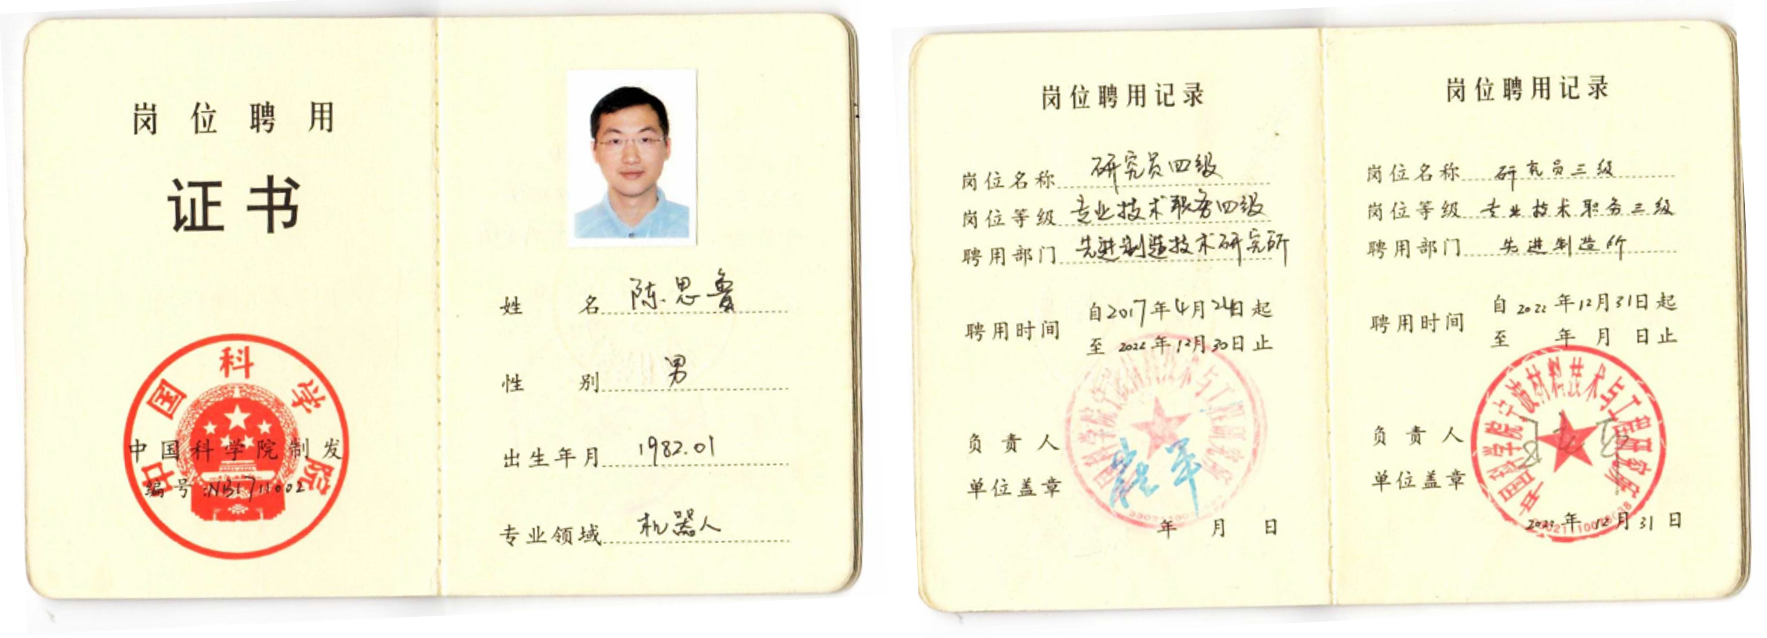 岗位聘用
证书
中国科学院
中国科学院制发
编号:NB1711002
姓 名 陈思鲁
性 别 男
出生年月 1982.01
专业领域 机器人
岗位聘用记录
岗位名称 研究员四级
岗位等级 专业技术职务四级
聘用部门 先进制造技术研究所
聘用时间 自2017年4月24日起
至2022年12月30日止
负责人
单位盖章
年 月 日
岗位聘用记录
岗位名称 研究员三级
岗位等级 专业技术职务三级
聘用部门 先进制造所
聘用时间 自2022年12月31日起
至 年 月 日止
负责人
单位盖章
中国科学院宁波材料技术与工程研究所
年12月31日